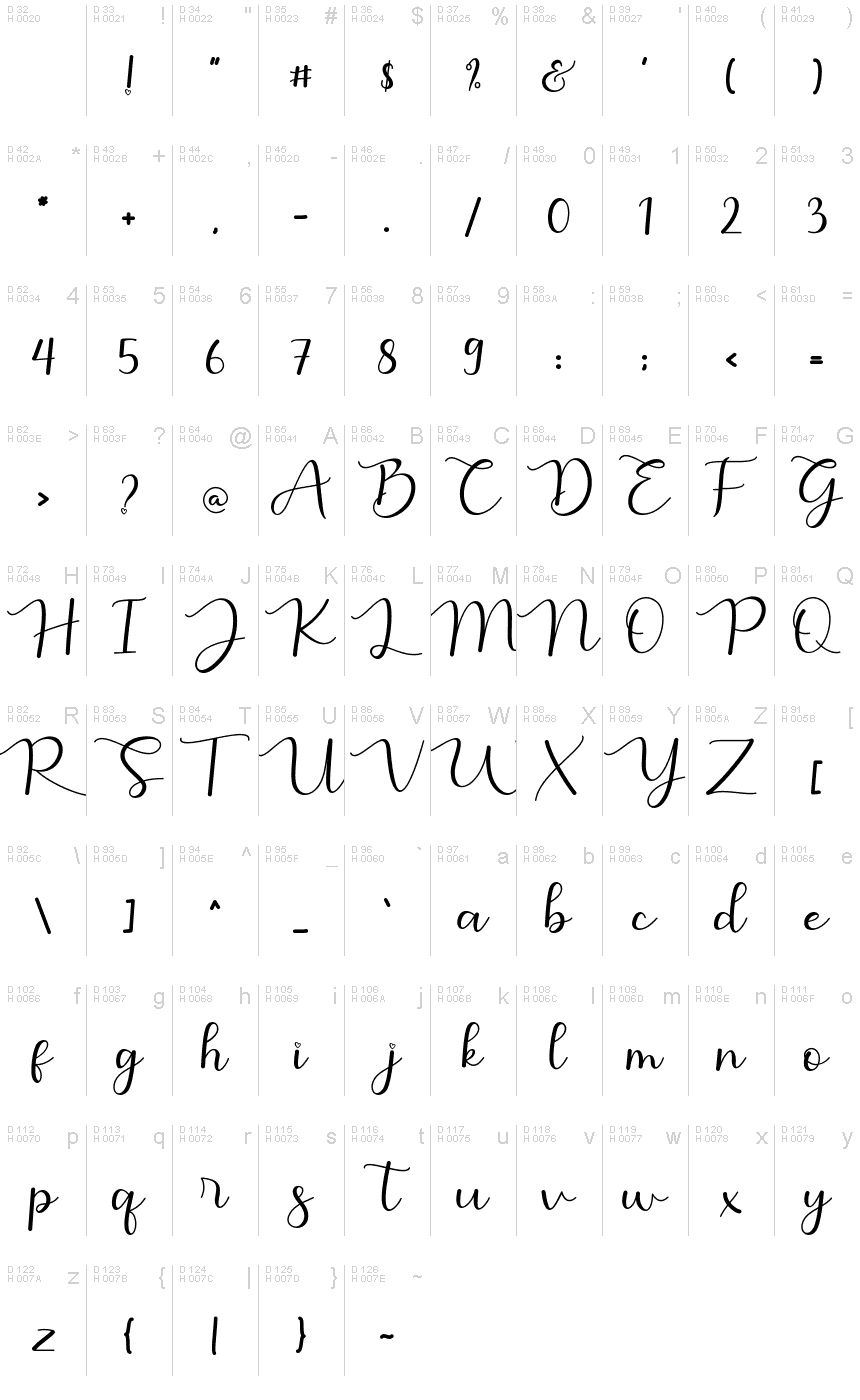 D 32 D 33 ! D 34 " D 35 # D 36 $ D 37 % D 38 & D 39 ' D 40 ( D 41 )
H 0020 H 0021 H 0022 H 0023 H 0024 H 0025 H 0026 H 0027 H 0028 H 0029
! " # $ % & ' ( )
D 42 * D 43 + D 44 , D 45 - D 46 . D 47 / D 48 0 D 49 1 D 50 2 D 51 3
H 002A H 002B H 002C H 002D H 002E H 002F H 0030 H 0031 H 0032 H 0033
* + , - . / 0 1 2 3
D 52 4 D 53 5 D 54 6 D 55 7 D 56 8 D 57 9 D 58 : D 59 ; D 60 < D 61 =
H 0034 H 0035 H 0036 H 0037 H 0038 H 0039 H 003A H 003B H 003C H 003D
4 5 6 7 8 9 : ; < =
D 62 > D 63 ? D 64 @ D 65 A D 66 B D 67 C D 68 D D 69 E D 70 F D 71 G
H 003E H 003F H 0040 H 0041 H 0042 H 0043 H 0044 H 0045 H 0046 H 0047
> ? @ A B C D E F G
D 72 H D 73 I D 74 J D 75 K D 76 L D 77 M D 78 N D 79 O D 80 P D 81 Q
H 0048 H 0049 H 004A H 004B H 004C H 004D H 004E H 004F H 0050 H 0051
H I J K L M N O P Q
D 82 R D 83 S D 84 T D 85 U D 86 V D 87 W D 88 X D 89 Y D 90 Z D 91 [
H 0052 H 0053 H 0054 H 0055 H 0056 H 0057 H 0058 H 0059 H 005A H 005B
R S T U V W X Y Z [
D 92 \ D 93 ] D 94 ^ D 95 _ D 96 ` D 97 a D 98 b D 99 c D 100 d D 101 e
H 005C H 005D H 005E H 005F H 0060 H 0061 H 0062 H 0063 H 0064 H 0065
\ ] ^ _ ` a b c d e
D 102 f D 103 g D 104 h D 105 i D 106 j D 107 k D 108 l D 109 m D 110 n D 111 o
H 0066 H 0067 H 0068 H 0069 H 006A H 006B H 006C H 006D H 006E H 006F
f g h i j k l m n o
D 112 p D 113 q D 114 r D 115 s D 116 t D 117 u D 118 v D 119 w D 120 x D 121 y
H 0070 H 0071 H 0072 H 0073 H 0074 H 0075 H 0076 H 0077 H 0078 H 0079
p q r s t u v w x y
D 122 z D 123 { D 124 | D 125 } D 126 ~
H 007A H 007B H 007C H 007D H 007E
z { | } ~